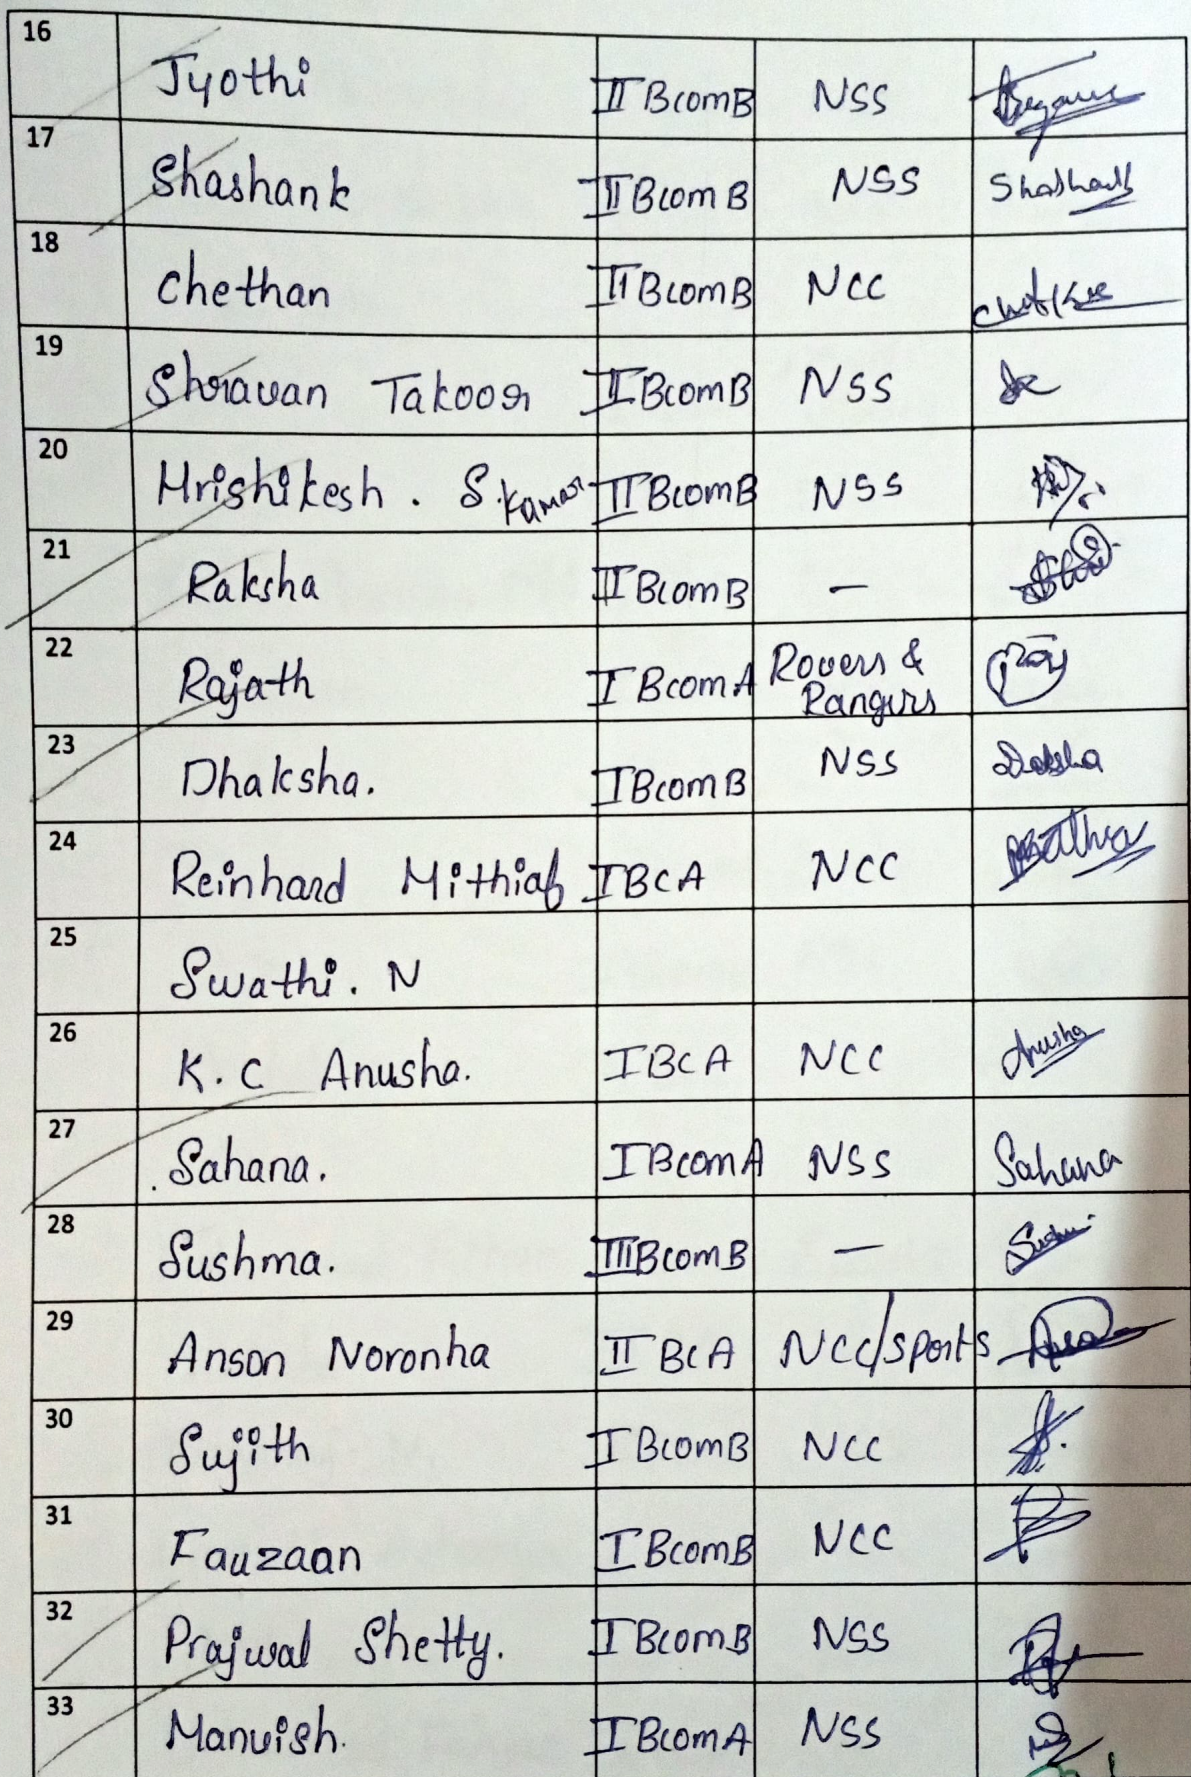 16 Jyothi II BcomB NSS
17 Shashank II BcomB NSS Shashank
18 Chethan II BcomB NCC
19 Shravan Takoor II BcomB NSS
20 Hrishikesh . S. Kamar II BcomB NSS
21 Raksha III BcomB –
22 Rajath I BcomA Rovers & Rangers
23 Dhaksha. I BcomB NSS Daksha
24 Reinhard Mithiaf I BCA NCC
25 Swathi. N
26 K. C Anusha. I BCA NCC Anusha
27 Sahana. I BcomA NSS Sahana
28 Sushma. III BcomB –
29 Anson Noronha II BCA NCC/Sports
30 Sujith I BcomB NCC
31 Fauzaan I BcomB NCC
32 Prajwal Shetty. I BcomB NSS
33 Manvish. I BcomA NSS